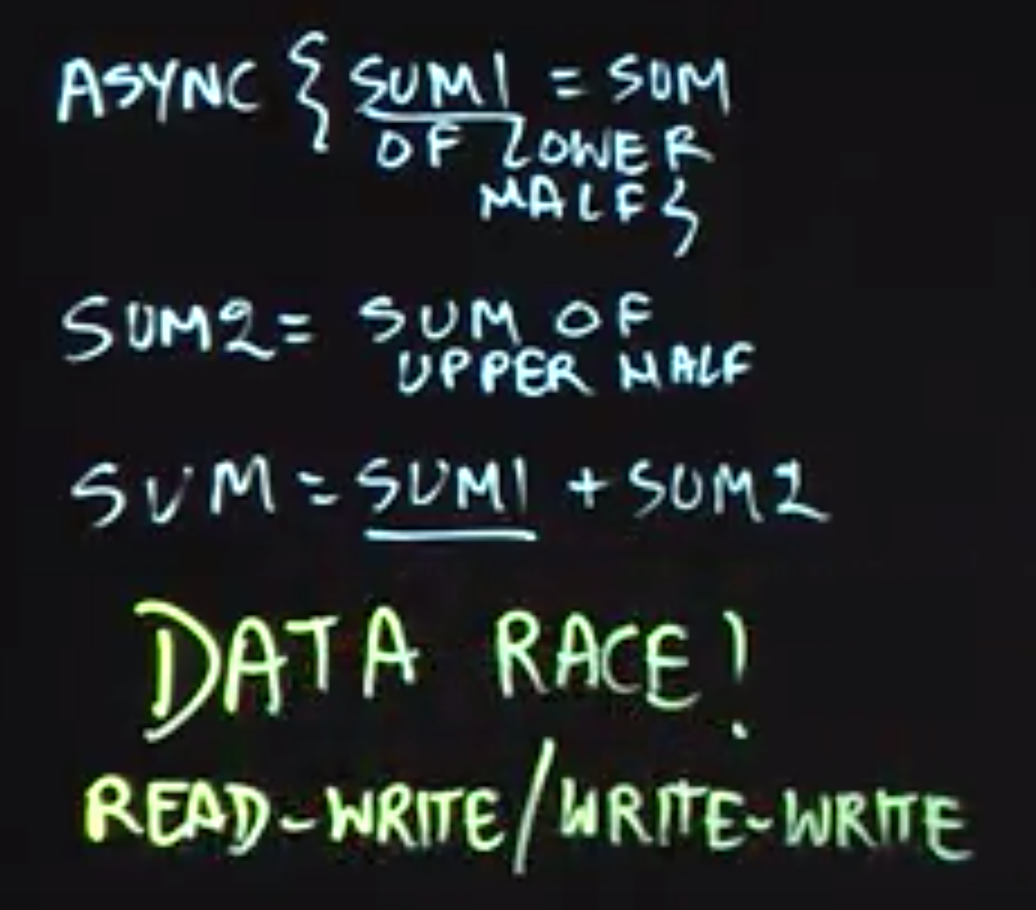 ASYNC { SUM1 = SUM
OF LOWER
HALF}
SUM2 = SUM OF
UPPER HALF
SUM = SUM1 + SUM2
DATA RACE!
READ-WRITE/WRITE-WRITE